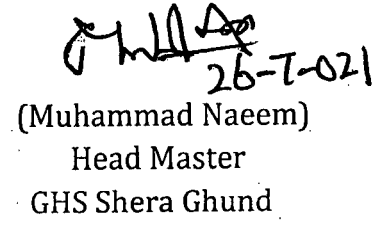 26-7-021
(Muhammad Naeem)
Head Master
GHS Shera Ghund